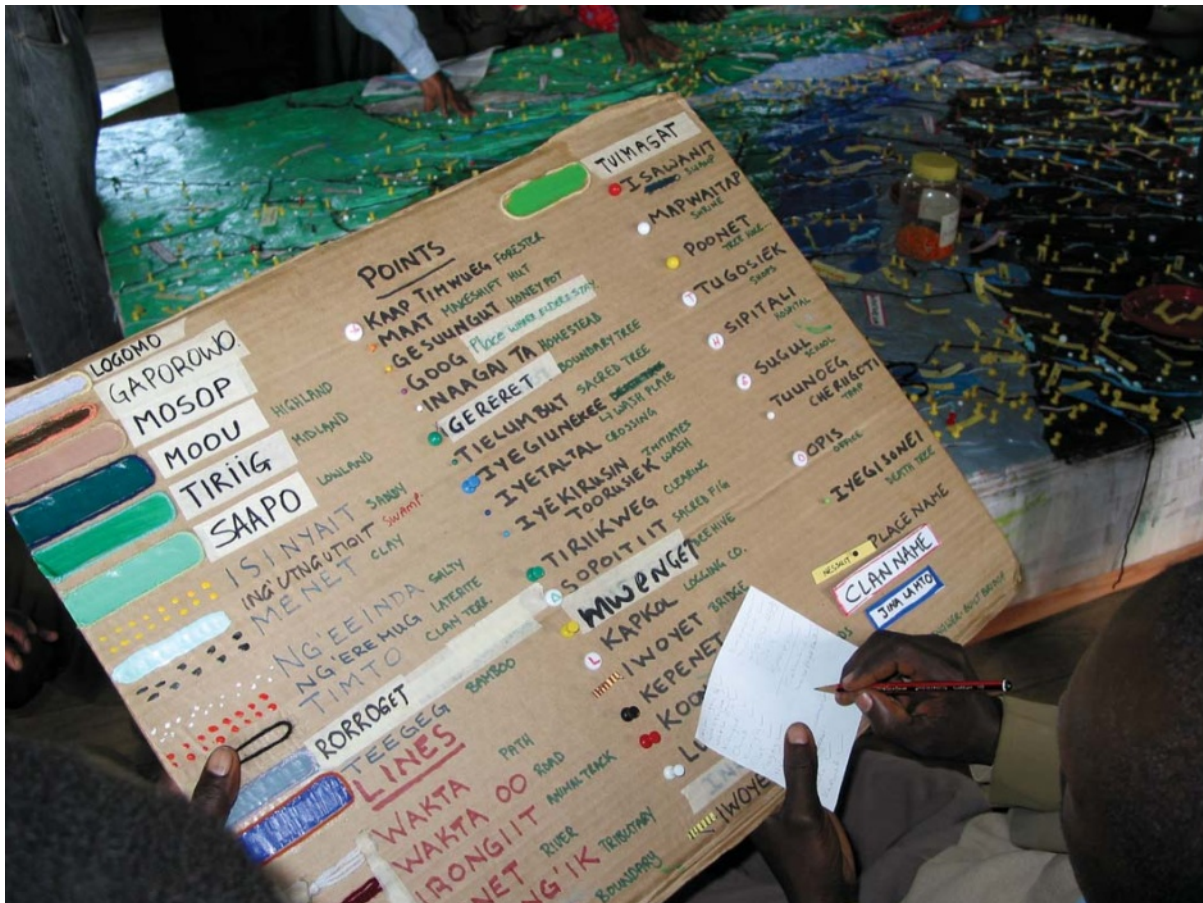 LOGOMO
GAPOROWO.
MOSOP HIGHLAND
MOOU MIDLAND
TIRIIG LOWLAND
SAAPO
ISINYAIT SANDY
ING'UING'UTIOIT SWAMP.
MENET CLAY
NG'EEINDA SALTY
NG'ERE MUG LATERITE
TIMTO CLAN TERR
RORROGET
TEEGEG BAMBOO
LINES
WAKTA PATH
WAKTA OO ROAD
IRONGIIT ANIMAL TRACK
NET RIVER
NG'IK TRIBUTARY
BOUNDARY
POINTS
KAAP TIMWUEG FORESTER
MAAT MAKESHIFT HUT
GESUUNGUT HONEY POT
GOOG Place WHERE ELDERS STAY
INAAGAI TA HOMESTEAD
GERERET. BOUNDARY TREE
TIELUMBUT SACRED TREE
IYEGIUNEKEE
IYETALTAL CROSSING
IYEKIRUSIN INITIATES
TOORUSIEK WASH
TIRIIKWEG CLEARING
SOPOITIIT SACRED FIG
MWENGET BEEHIVE
L KAPKOL LOGGING CO.
IWOYET BRIDGE
KEPENET
TUIMASAT
ISAWANIT SWAMP
MAPWAITAP SHRINE
POONET
T TUGOSIEK SHOPS
H SIPITALI HOSPITAL
SUGUL SCHOOL
TUUNOEG
CHERIIGOTI TRAP
O OPIS OFFICE
IYEGISONEI DEATH TREE
PLACE NAME
CLAN NAME
JINA LA MTO